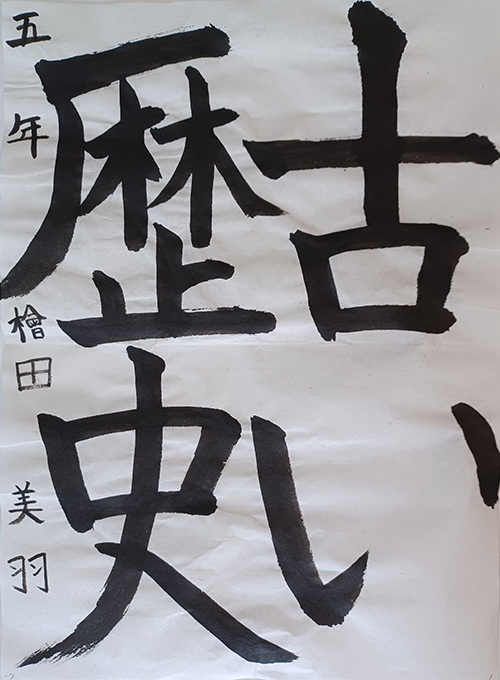 古い
歴史
五年 檜田 美羽